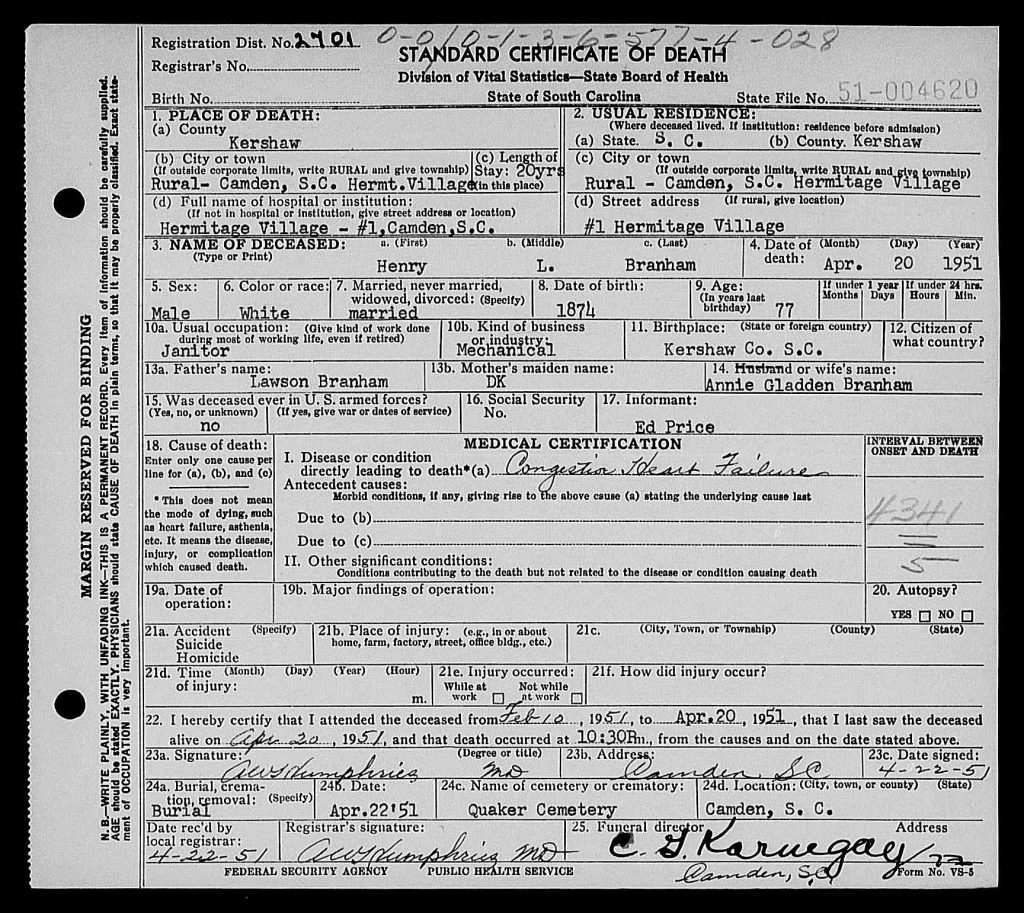 Registration Dist. No. 2701 0-0/0-1-3-6-577-4-028
STANDARD CERTIFICATE OF DEATH
Registrar's No.
Division of Vital Statistics—State Board of Health
Birth No.
State of South Carolina
State File No. 51-004620
1. PLACE OF DEATH:
(a) County
Kershaw
2. USUAL RESIDENCE:
(Where deceased lived. If institution: residence before admission)
(a) State. S. C. (b) County. Kershaw
(b) City or town
(If outside corporate limits, write RURAL and give township)
Rural- Camden, S.C. Hermt.Village
(c) Length of
Stay: 20yrs
(in this place)
(c) City or town
(If outside corporate limits, write RURAL and give township)
Rural - Camden, S.C. Hermitage Village
(d) Full name of hospital or institution:
(If not in hospital or institution, give street address or location)
Hermitage Village - #1,Camden,S.C.
(d) Street address (If rural, give location)
#1 Hermitage Village
3. NAME OF DECEASED: a. (First) b. (Middle) c. (Last)
(Type or Print)
Henry L. Branham
4. Date of (Month) (Day) (Year)
death: Apr. 20 1951
5. Sex:
Male
6. Color or race:
White
7. Married, never married,
widowed, divorced: (Specify)
married
8. Date of birth:
1874
9. Age:
(In years last
birthday) 77
If under 1 year
Months Days
If under 24 hrs.
Hours Min.
10a. Usual occupation: (Give kind of work done
during most of working life, even if retired)
Janitor
10b. Kind of business
or industry:
Mechanical
11. Birthplace: (State or foreign country)
Kershaw Co. S.C.
12. Citizen of
what country?
13a. Father's name:
Lawson Branham
13b. Mother's maiden name:
DK
14. Husband or wife's name:
Annie Gladden Branham
15. Was deceased ever in U. S. armed forces?
(Yes, no, or unknown) (If yes, give war or dates of service)
no
16. Social Security
No.
17. Informant:
Ed Price
18. Cause of death:
Enter only one cause per
line for (a), (b), and (c)
* This does not mean
the mode of dying, such
as heart failure, asthenia,
etc. It means the disease,
injury, or complication
which caused death.
MEDICAL CERTIFICATION
I. Disease or condition
directly leading to death*(a) Congestive Heart Failure
Antecedent causes:
Morbid conditions, if any, giving rise to the above cause (a) stating the underlying cause last
Due to (b)
Due to (c)
II. Other significant conditions:
Conditions contributing to the death but not related to the disease or condition causing death
INTERVAL BETWEEN
ONSET AND DEATH
4341
5
19a. Date of
operation:
19b. Major findings of operation:
20. Autopsy?
YES NO
21a. Accident (Specify)
Suicide
Homicide
21b. Place of injury: (e.g., in or about
home, farm, factory, street, office bldg., etc.)
21c. (City, Town, or Township) (County) (State)
21d. Time (Month) (Day) (Year) (Hour)
of injury: m.
21e. Injury occurred:
While at work Not while at work
21f. How did injury occur?
22. I hereby certify that I attended the deceased from Feb 10, 1951, to Apr.20, 1951, that I last saw the deceased
alive on Apr 20, 1951, and that death occurred at 10:30Pm., from the causes and on the date stated above.
23a. Signature: (Degree or title)
AW Humphries MD
23b. Address:
Camden SC
23c. Date signed:
4-22-51
24a. Burial, crema-
tion, removal: (Specify)
Burial
24b. Date:
Apr.22'51
24c. Name of cemetery or crematory:
Quaker Cemetery
24d. Location: (City, town, or county) (State)
Camden, S. C.
Date rec'd by
local registrar:
4-22-51
Registrar's signature:
AW Humphries MD
25. Funeral director Address
C. G. Karnegay
Camden, S.C.
FEDERAL SECURITY AGENCY PUBLIC HEALTH SERVICE
Form No. VS-5
MARGIN RESERVED FOR BINDING
N.B.—WRITE PLAINLY, WITH UNFADING INK—THIS IS A PERMANENT RECORD. Every item of information should be carefully supplied.
AGE should be stated EXACTLY. PHYSICIANS should state CAUSE OF DEATH in plain terms, so that it may be properly classified. Exact state-
ment of OCCUPATION is very important.